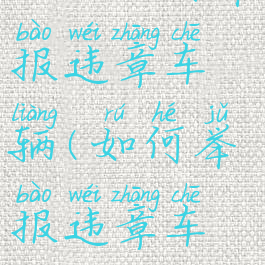 bào wéi zhāng chē
报违章车
liàng rú hé jǔ
辆(如何举
bào wéi zhāng chē
报违章车